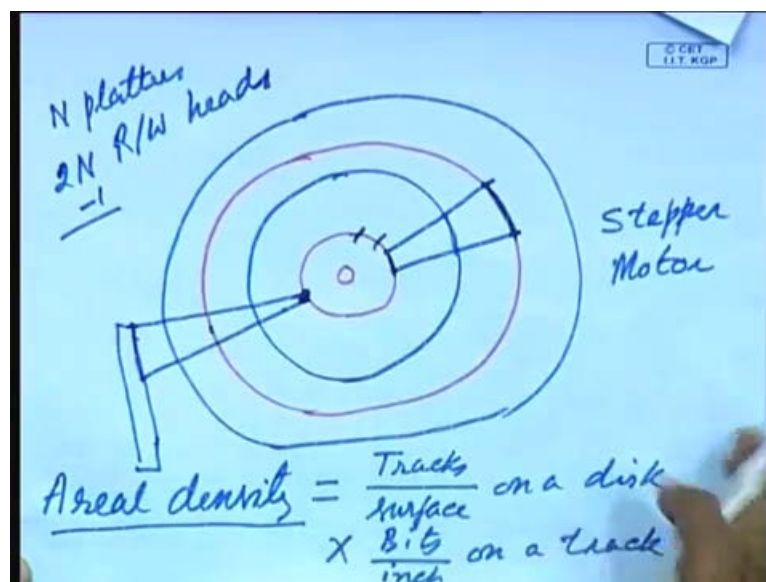 © CET
I.I.T. KGP
N platters
2N R/W heads
-1
Stepper
Motor
Areal density = Tracks / surface on a disk
x Bits / inch on a track